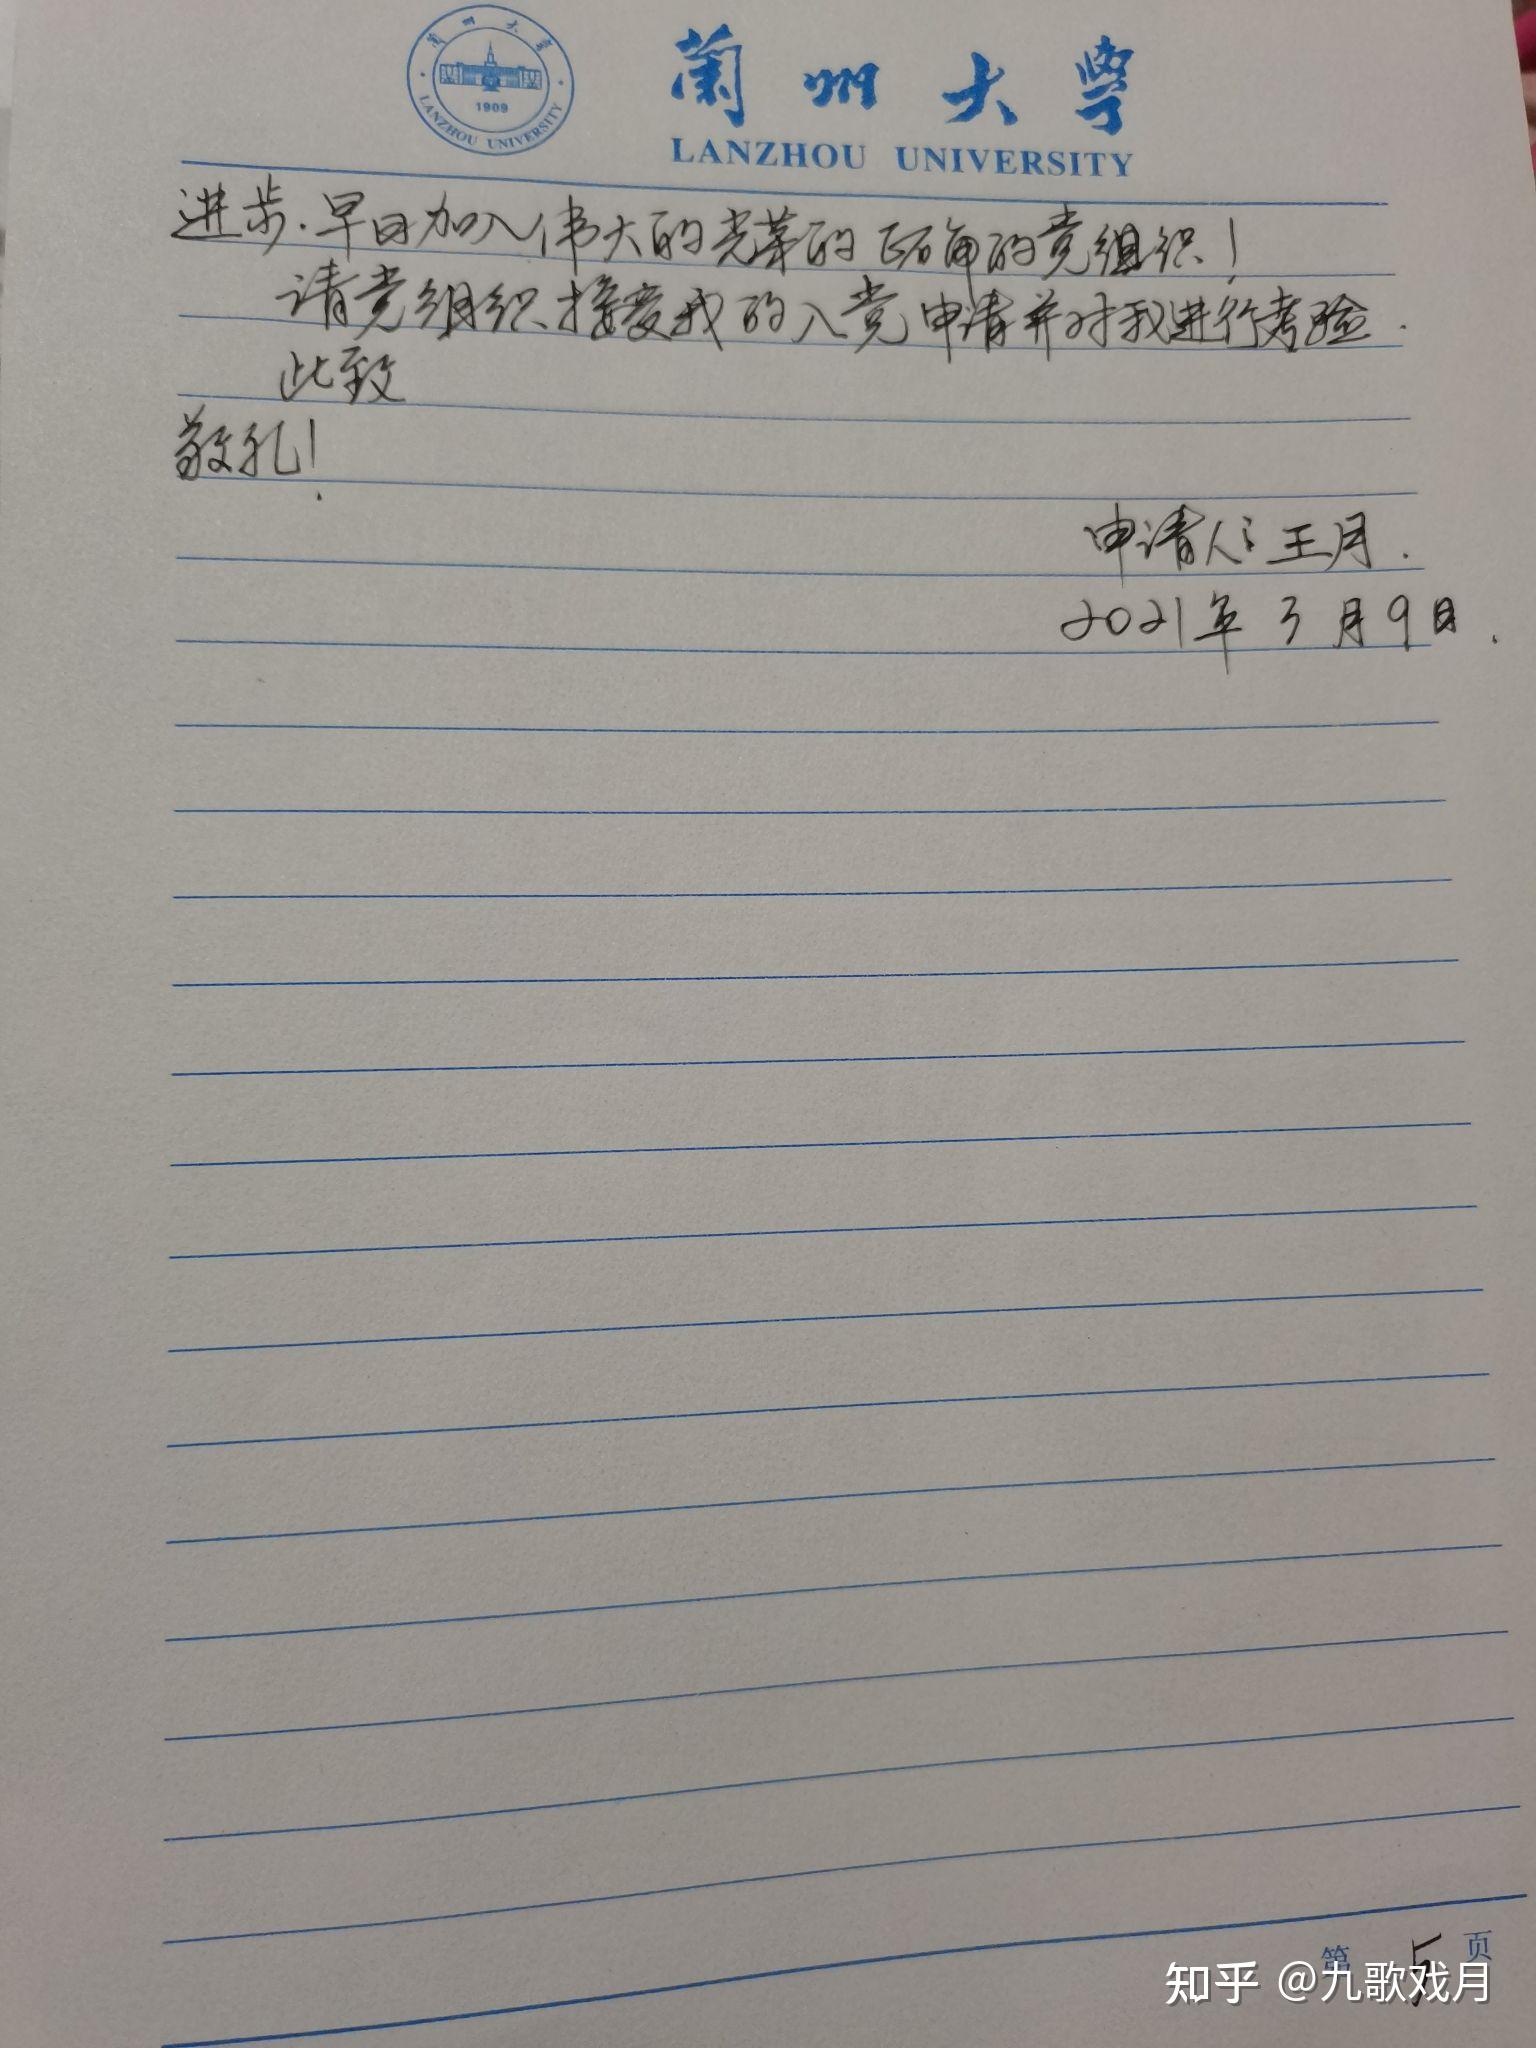 兰州大学
1909
LANZHOU UNIVERSITY
蘭州大學
LANZHOU UNIVERSITY
进步.早日加入伟大的光荣的正确的党组织！
请党组织接受我的入党申请并对我进行考验.
此致
敬礼！
申请人：王月.
2021年3月9日.
第 5 页
知乎 @九歌戏月